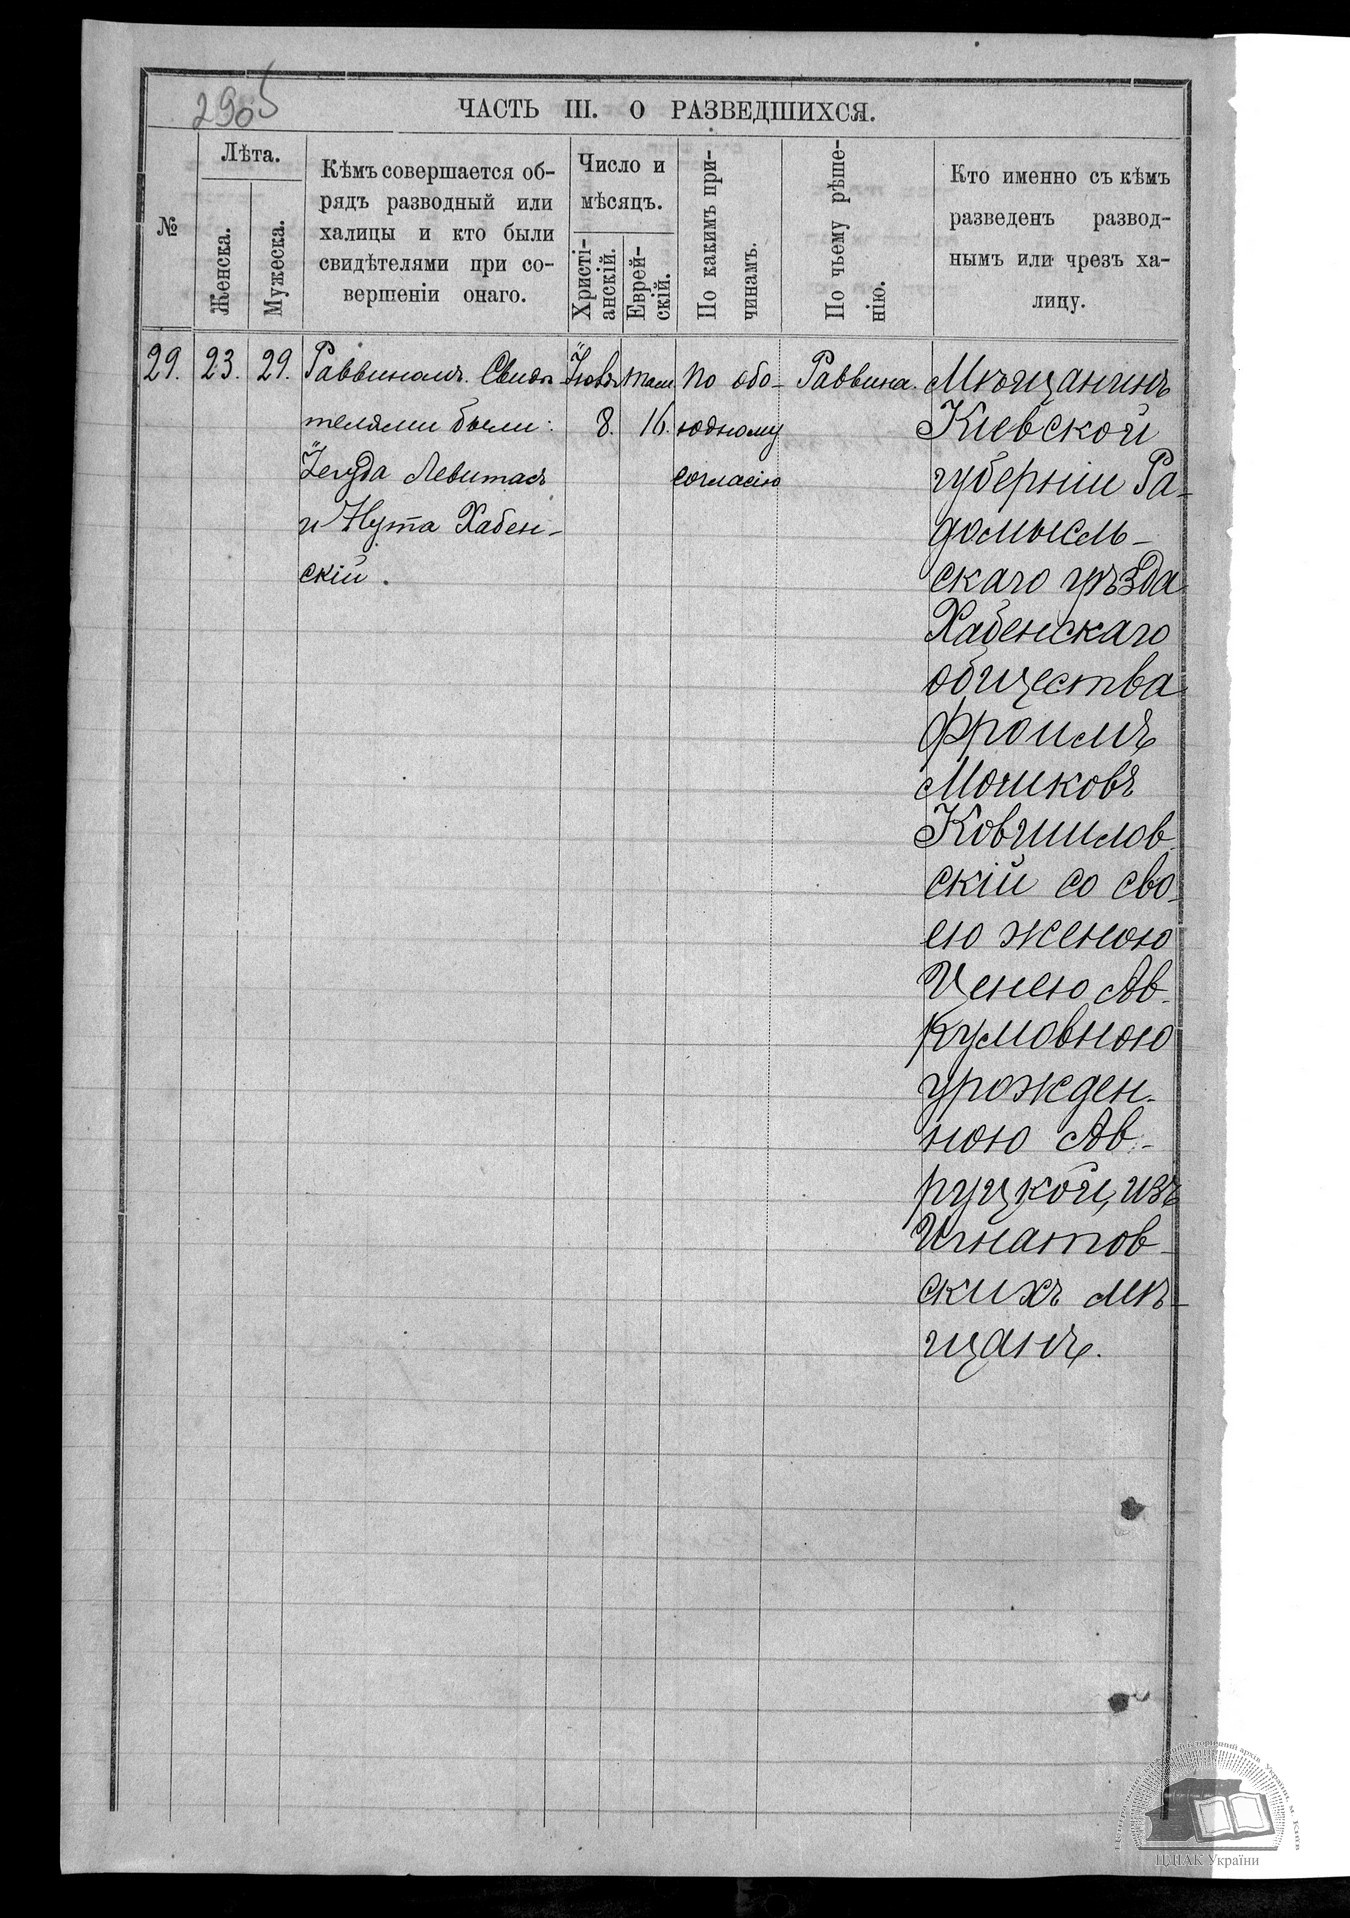 2905
ЧАСТЬ III. О РАЗВЕДШИХСЯ.
№
Лѣта.
Женска.
Мужеска.
Кѣмъ совершается об-
рядъ разводный или
халицы и кто были
свидѣтелями при со-
вершеніи онаго.
Число и
мѣсяцъ.
Христі-
анскій.
Еврей-
скій.
По какимъ при-
чинамъ.
По чьему рѣше-
нію.
Кто именно съ кѣмъ
разведенъ развод-
нымъ или чрезъ ха-
лицу.
29.
23.
29.
Раввиномъ. Свидѣ-
телями были:
Іегуда Левитасъ
и Нута Хабен-
скій.
8.
16.
по обо-
юдному
согласію
Раввина.
Мѣщанинъ
Кіевской
губерніи Ра-
домысль-
скаго уѣзда
Хабенскаго
общества
Фроимъ
Мошковъ
Ковшилов-
скій со сво-
ею женою
Ценею Ав-
румовною
урожден-
ною Ав-
руцкой, изъ
Игнатов-
скихъ мѣ-
щанъ.
ЦДІАК України